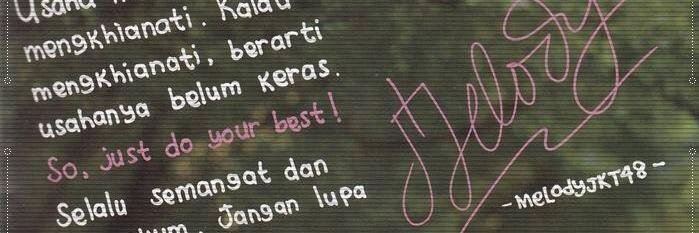 Usaha
mengkhianati. Kalau
mengkhianati, berarti
usahanya belum keras.
So, just do your best!
Selalu semangat dan
Jangan lupa
Melody
-MelodyJKT48-